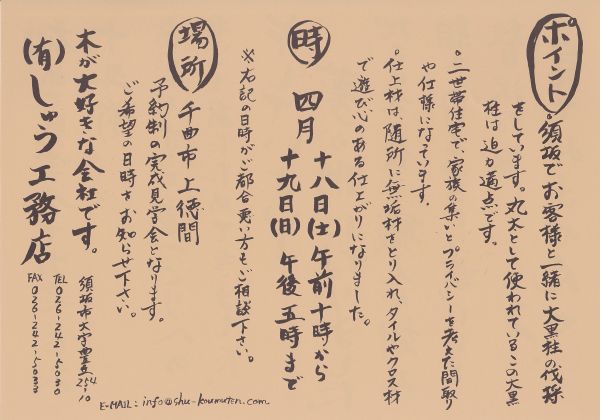 ポイント
・須坂でお客様と一緒に大黒柱の伐採
をしています。丸太として使われているこの大黒
柱は迫力満点です。
・二世帯住宅で、家族の集いとプライバシーを考えた間取り
や仕様になっています。
・仕上材は、随所に無垢材をとり入れ、タイルやクロス材
で遊び心のある仕上がりになりました。
時
四月
十八日(土)午前十時から
十九日(日)午後五時まで
※右記の日時がご都合悪い方もご相談下さい。
場所
千曲市上徳間
予約制の完成見学会となります。
ご希望の日時をお知らせ下さい。
木が大好きな会社です。
(有)しゅう工務店
須坂市大字豊丘254-10
TEL 026-242-5030
FAX 026-242-5033
E-MAIL: info@shu-koumuten.com